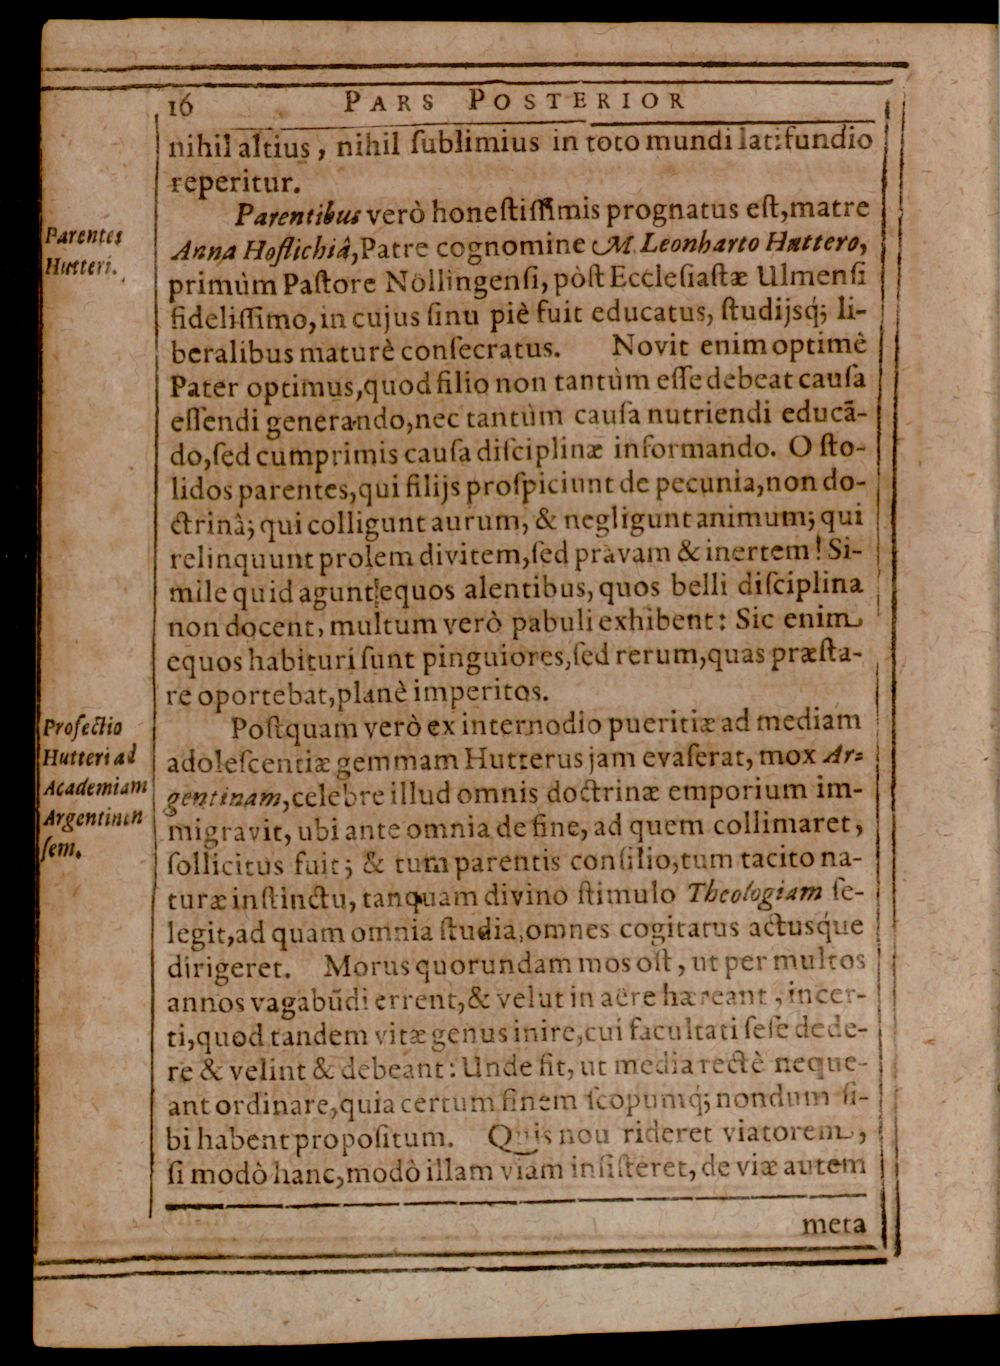 16 PARS POSTERIOR
nihil altius, nihil ſublimius in toto mundi latifundio
reperitur.
Parentibus verò honeſtiſſimis prognatus eſt, matre
Anna Hoflichiâ, Patre cognomine M. Leonharto Huttero,
primùm Paſtore Nöllingenſi, pòſt Eccleſiaſtæ Ulmenſi
fideliſſimo, in cujus ſinu piè fuit educatus, ſtudijsq́; li-
beralibus maturè conſecratus. Novit enim optimè
Pater optimus, quod filio non tantùm eſſe debeat cauſa
eſſendi generando, nec tantùm cauſa nutriendi educã-
do, ſed cumprimis cauſa diſciplinæ informando. O ſto-
lidos parentes, qui filijs proſpiciunt de pecunia, non do-
ctrinâ; qui colligunt aurum, & negligunt animum; qui
relinquunt prolem divitem, ſed pravam & inertem! Si-
mile quid agunt equos alentibus, quos belli diſciplina
non docent, multum verò pabuli exhibent: Sic enim
equos habituri ſunt pinguiores, ſed rerum, quas præſta-
re oportebat, planè imperitos.
Poſtquam verò ex internodio pueritiæ ad mediam
adoleſcentiæ gemmam Hutterus jam evaſerat, mox Ar-
gentinam, celebre illud omnis doctrinæ emporium im-
migravit, ubi ante omnia de fine, ad quem collimaret,
ſollicitus fuit; & tum parentis conſilio, tum tacito na-
turæ inſtinctu, tanquam divino ſtimulo Theologiam ſe-
legit, ad quam omnia ſtudia, omnes cogitatus actusq́ue
dirigeret. Morus quorundam mos oſt, ut per multos
annos vagabũdi errent, & velut in aëre hæreant, incer-
ti, quod tandem vitæ genus inire, cui facultati ſeſe dede-
re & velint & debeant: Unde fit, ut media rectè neque-
ant ordinare, quia certum finem ſcopumq́; nondum ſi-
bi habent propoſitum. Quis non rideret viatorem,
ſi modò hanc, modò illam viam inſiſteret, de viæ autem
meta
Parentes
Hutteri.
Profectio
Hutteri ad
Academiam
Argentinen
ſem.